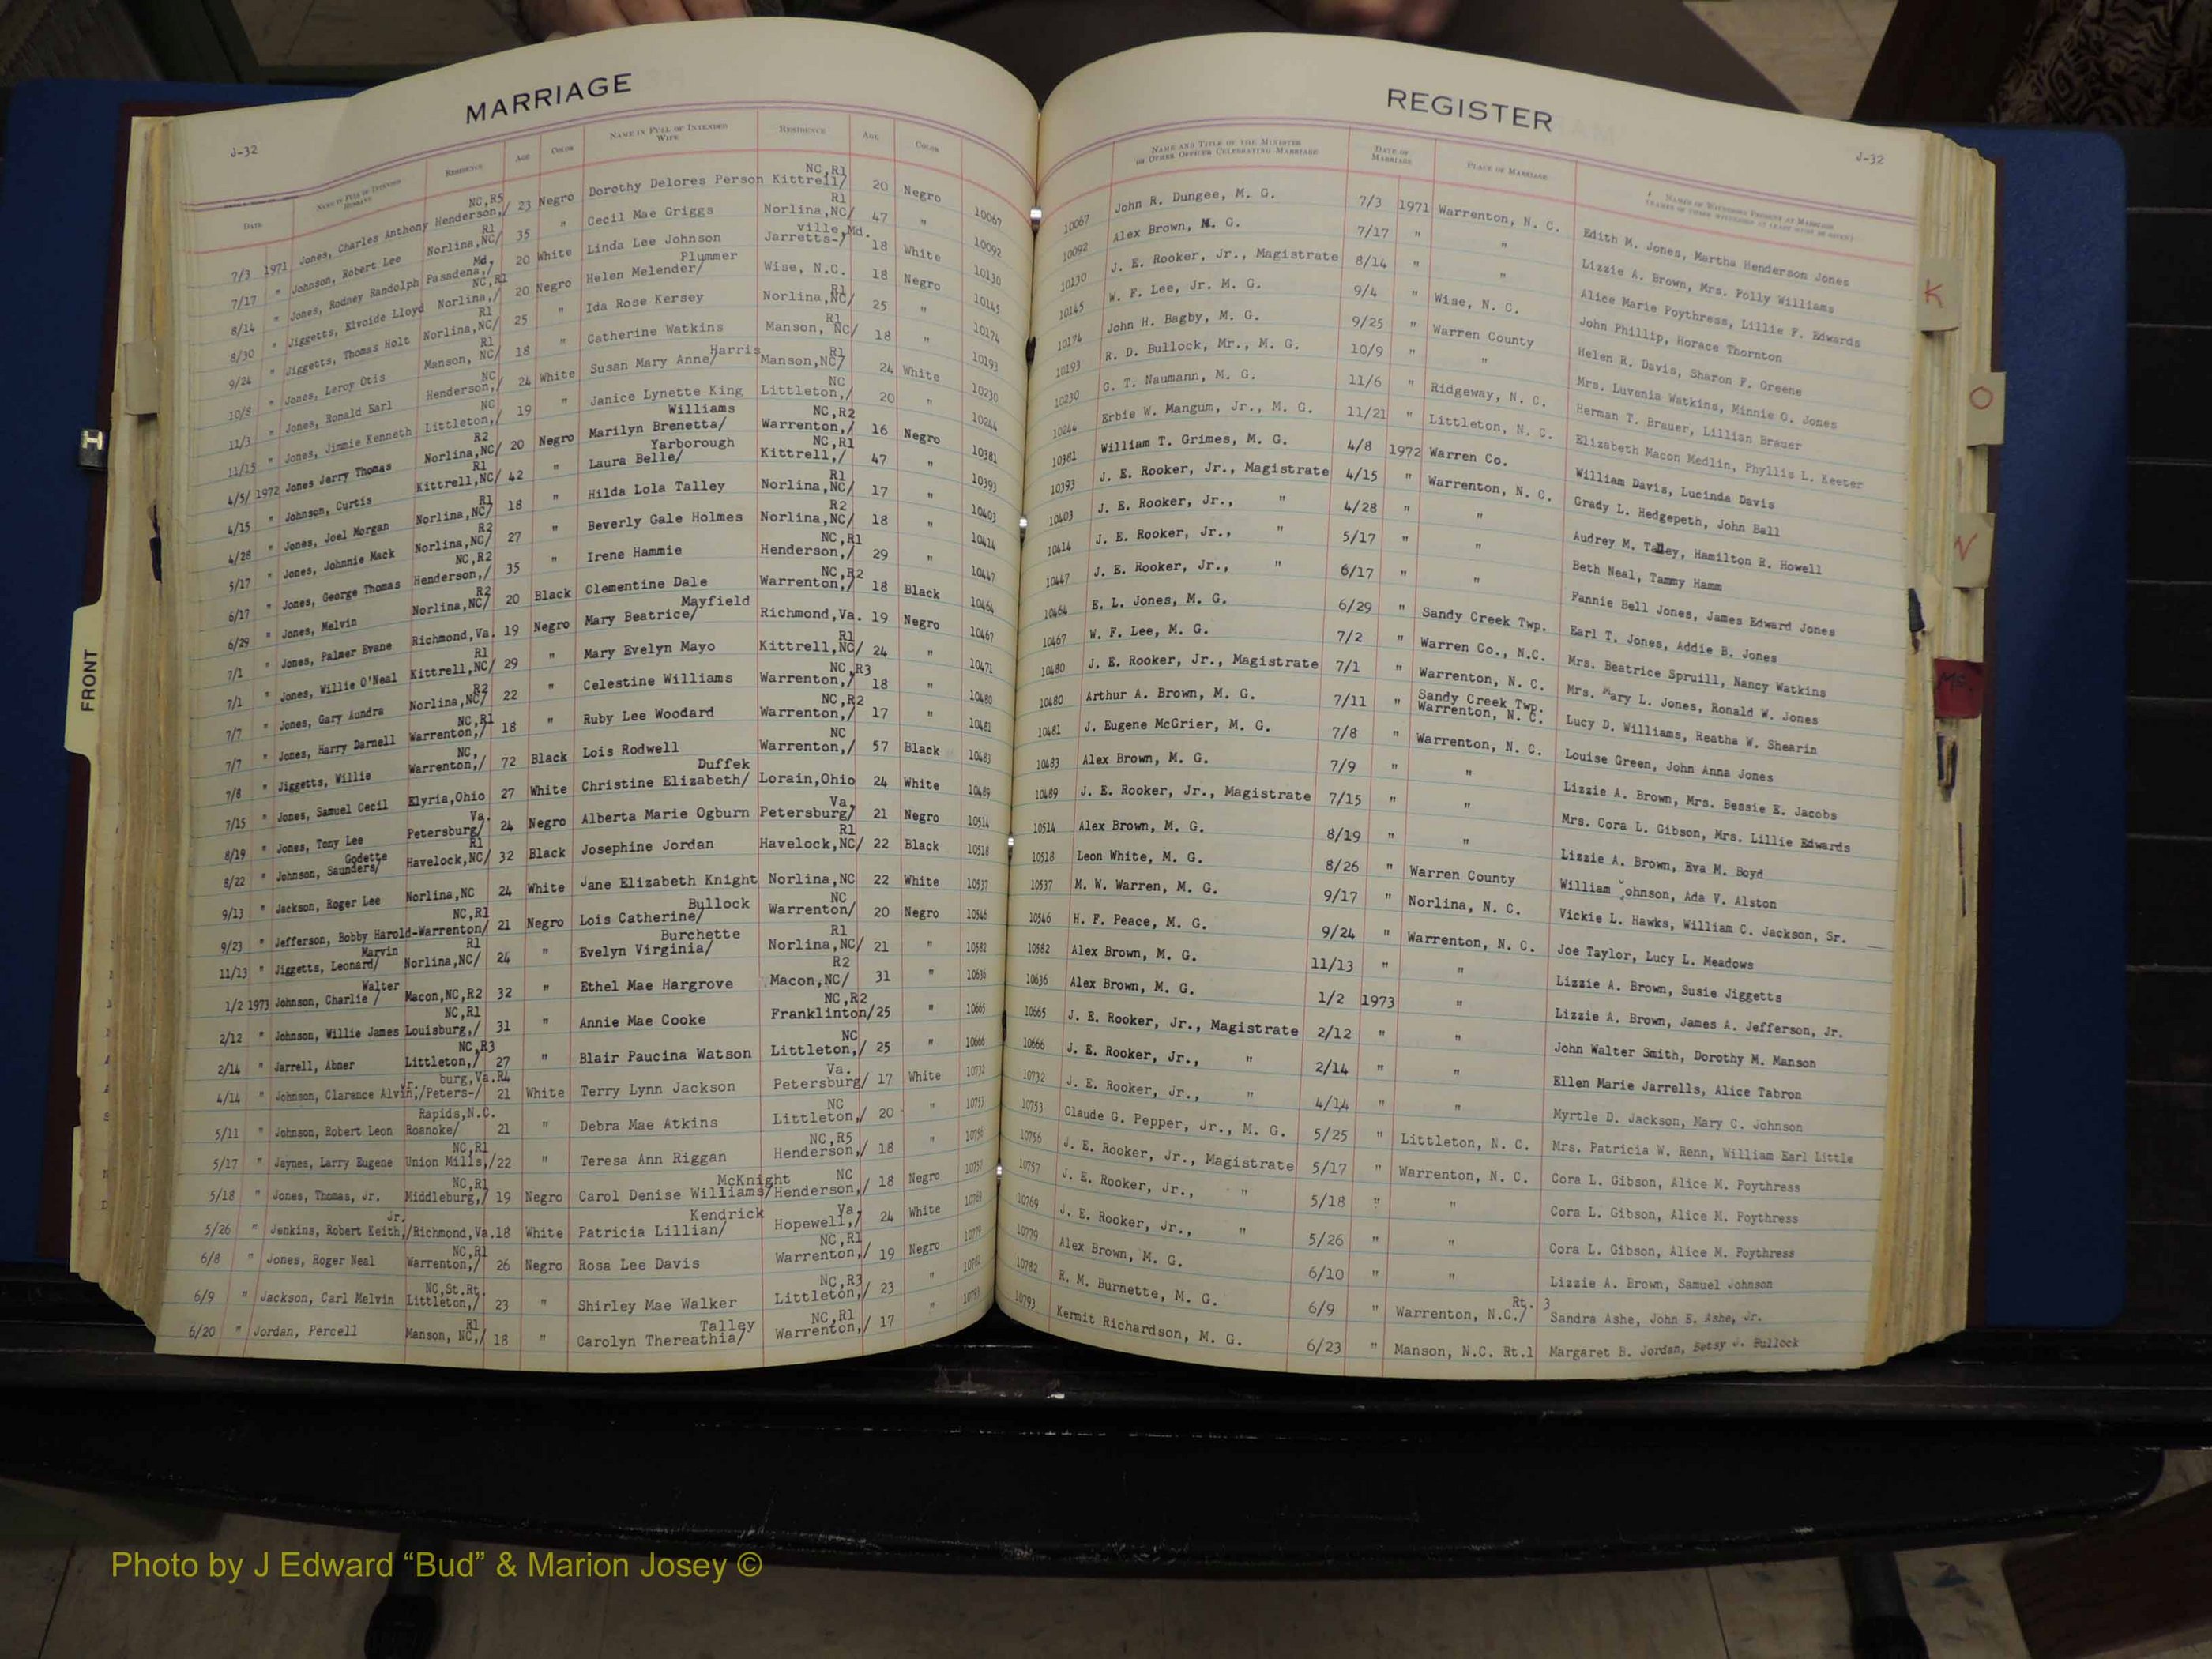 MARRIAGE
J-32
DATE NAME IN FULL OF INTENDED HUSBAND RESIDENCE AGE COLOR NAME IN FULL OF INTENDED WIFE RESIDENCE AGE COLOR
7/3 1971 Jones, Charles Anthony Henderson,/ NC,R5 23 Negro Dorothy Delores Person Kittrell/ NC,R1 20 Negro 10067
7/17 " Johnson, Robert Lee Norlina,NC/ R1 35 " Cecil Mae Griggs Norlina,NC/ R1 47 " 10092
8/14 " Jones, Rodney Randolph Pasadena,/ Md, 20 White Linda Lee Johnson Jarretts-/ ville,Md. 18 White 10130
8/30 " Jiggetts, Elvoide Lloyd Norlina,/ NC,R1 20 Negro Helen Melender/ Plummer Wise, N.C. 18 Negro 10145
9/24 " Jiggetts, Thomas Holt Norlina,NC/ R1 25 " Ida Rose Kersey Norlina,NC/ R1 25 " 10174
10/8 " Jones, Leroy Otis Manson, NC/ R1 18 " Catherine Watkins Manson, NC/ R1 18 " 10193
11/3 " Jones, Ronald Earl Henderson,/ NC 24 White Susan Mary Anne/ Harris Manson,NC/ R1 24 White 10230
11/15 " Jones, Jimmie Kenneth Littleton,/ NC 19 " Janice Lynette King Littleton,/ NC 20 " 10244
4/5/ 1972 Jones Jerry Thomas Norlina,NC/ R2 20 Negro Marilyn Brenetta/ Williams Warrenton,/ NC,R2 16 Negro 10381
4/15 " Johnson, Curtis Kittrell,NC/ R1 42 " Laura Belle/ Yarborough Kittrell,/ NC,R1 47 " 10393
4/28 " Jones, Joel Morgan Norlina,NC/ R1 18 " Hilda Lola Talley Norlina,NC/ R1 17 " 10403
5/17 " Jones, Johnnie Mack Norlina,NC/ R2 27 " Beverly Gale Holmes Norlina,NC/ R2 18 " 10414
6/17 " Jones, George Thomas Henderson,/ NC,R2 35 " Irene Hammie Henderson,/ NC,R1 29 " 10447
6/29 " Jones, Melvin Norlina,NC/ R2 20 Black Clementine Dale Warrenton,/ NC,R2 18 Black 10464
7/1 " Jones, Palmer Evane Richmond,Va. 19 Negro Mary Beatrice/ Mayfield Richmond,Va. 19 Negro 10467
7/1 " Jones, Willie O'Neal Kittrell,NC/ R1 29 " Mary Evelyn Mayo Kittrell,NC/ R1 24 " 10471
7/7 " Jones, Gary Aundra Norlina,NC/ R2 22 " Celestine Williams Warrenton,/ NC,R3 18 " 10480
7/7 " Jones, Harry Darnell Warrenton,/ NC,R1 18 " Ruby Lee Woodard Warrenton,/ NC,R2 17 " 10481
7/8 " Jiggetts, Willie Warrenton,/ NC, 72 Black Lois Rodwell Warrenton,/ NC 57 Black 10483
7/15 " Jones, Samuel Cecil Elyria,Ohio 27 White Christine Elizabeth/ Duffek Lorain,Ohio 24 White 10489
8/19 " Jones, Tony Lee Petersburg/ Va. 24 Negro Alberta Marie Ogburn Petersburg/ Va, 21 Negro 10514
8/22 " Johnson, Saunders/ Godette Havelock,NC/ R1 32 Black Josephine Jordan Havelock,NC/ R1 22 Black 10518
9/13 " Jackson, Roger Lee Norlina,NC 24 White Jane Elizabeth Knight Norlina,NC 22 White 10537
9/23 " Jefferson, Bobby Harold-Warrenton/ NC,R1 21 Negro Lois Catherine/ Bullock Warrenton/ NC 20 Negro 10546
11/13 " Jiggetts, Leonard/ Marvin Norlina,NC/ R1 24 " Evelyn Virginia/ Burchette Norlina,NC/ R1 21 " 10582
1/2 1973 Johnson, Charlie / Walter Macon,NC,R2 32 " Ethel Mae Hargrove Macon,NC/ R2 31 " 10636
2/12 " Johnson, Willie James Louisburg,/ NC,R1 31 " Annie Mae Cooke Franklinton/ NC,R2 25 " 10665
2/14 " Jarrell, Abner Littleton,/ NC,R3 27 " Blair Paucina Watson Littleton,/ NC 25 " 10666
4/14 " Johnson, Clarence Alvin,/ Jr. Peters-/ burg,Va.R4 21 White Terry Lynn Jackson Petersburg/ Va. 17 White 10732
5/11 " Johnson, Robert Leon Roanoke/ Rapids,N.C. 21 " Debra Mae Atkins Littleton,/ NC 20 " 10753
5/17 " Jaynes, Larry Eugene Union Mills,/ NC,R1 22 " Teresa Ann Riggan Henderson,/ NC,R5 18 " 10756
5/18 " Jones, Thomas, Jr. Middleburg,/ NC,R1 19 Negro Carol Denise Williams/ McKnight Henderson,/ NC 18 Negro 10757
5/26 " Jenkins, Robert Keith,/ Jr. Richmond,Va. 18 White Patricia Lillian/ Kendrick Hopewell,/ Va, 24 White 10769
6/8 " Jones, Roger Neal Warrenton,/ NC,R1 26 Negro Rosa Lee Davis Warrenton,/ NC,R1 19 Negro 10779
6/9 " Jackson, Carl Melvin Littleton,/ NC,St.Rt. 23 " Shirley Mae Walker Littleton,/ NC,R3 23 " 10782
6/20 " Jordan, Percell Manson, NC,/ R1 18 " Carolyn Thereathia/ Talley Warrenton,/ NC,R1 17 " 10793
REGISTER
J-32
NAME AND TITLE OF THE MINISTER OR OTHER OFFICER CELEBRATING MARRIAGE DATE OF MARRIAGE PLACE OF MARRIAGE NAMES OF WITNESSES PRESENT AT MARRIAGE
10067 John R. Dungee, M. G. 7/3 1971 Warrenton, N. C. Edith M. Jones, Martha Henderson Jones
10092 Alex Brown, M. G. 7/17 " " Lizzie A. Brown, Mrs. Polly Williams
10130 J. E. Rooker, Jr., Magistrate 8/14 " " Alice Marie Poythress, Lillie F. Edwards
10145 W. F. Lee, Jr. M. G. 9/4 " Wise, N. C. John Phillip, Horace Thornton
10174 John H. Bagby, M. G. 9/25 " Warren County Helen R. Davis, Sharon F. Greene
10193 R. D. Bullock, Mr., M. G. 10/9 " " Mrs. Luvenia Watkins, Minnie O. Jones
10230 G. T. Naumann, M. G. 11/6 " Ridgeway, N. C. Herman T. Brauer, Lillian Brauer
10244 Erbie W. Mangum, Jr., M. G. 11/21 " Littleton, N. C. Elizabeth Macon Medlin, Phyllis L. Keeter
10381 William T. Grimes, M. G. 4/8 1972 Warren Co. William Davis, Lucinda Davis
10393 J. E. Rooker, Jr., Magistrate 4/15 " Warrenton, N. C. Grady L. Hedgepeth, John Ball
10403 J. E. Rooker, Jr., " 4/28 " " Audrey M. Talley, Hamilton R. Howell
10414 J. E. Rooker, Jr., " 5/17 " " Beth Neal, Tammy Hamm
10447 J. E. Rooker, Jr., " 6/17 " " Fannie Bell Jones, James Edward Jones
10464 E. L. Jones, M. G. 6/29 " Sandy Creek Twp. Earl T. Jones, Addie B. Jones
10467 W. F. Lee, M. G. 7/2 " Warren Co., N.C. Mrs. Beatrice Spruill, Nancy Watkins
10480 J. E. Rooker, Jr., Magistrate 7/1 " Warrenton, N. C. Mrs. Mary L. Jones, Ronald W. Jones
10480 Arthur A. Brown, M. G. 7/11 " Sandy Creek Twp. Warrenton, N. C. Lucy D. Williams, Reatha W. Shearin
10481 J. Eugene McGrier, M. G. 7/8 " Warrenton, N. C. Louise Green, John Anna Jones
10483 Alex Brown, M. G. 7/9 " " Lizzie A. Brown, Mrs. Bessie E. Jacobs
10489 J. E. Rooker, Jr., Magistrate 7/15 " " Mrs. Cora L. Gibson, Mrs. Lillie Edwards
10514 Alex Brown, M. G. 8/19 " " Lizzie A. Brown, Eva M. Boyd
10518 Leon White, M. G. 8/26 " Warren County William Johnson, Ada V. Alston
10537 M. W. Warren, M. G. 9/17 " Norlina, N. C. Vickie L. Hawks, William C. Jackson, Sr.
10546 H. F. Peace, M. G. 9/24 " Warrenton, N. C. Joe Taylor, Lucy L. Meadows
10582 Alex Brown, M. G. 11/13 " " Lizzie A. Brown, Susie Jiggetts
10636 Alex Brown, M. G. 1/2 1973 " Lizzie A. Brown, James A. Jefferson, Jr.
10665 J. E. Rooker, Jr., Magistrate 2/12 " " John Walter Smith, Dorothy M. Manson
10666 J. E. Rooker, Jr., " 2/14 " " Ellen Marie Jarrells, Alice Tabron
10732 J. E. Rooker, Jr., " 4/14 " " Myrtle D. Jackson, Mary C. Johnson
10753 Claude G. Pepper, Jr., M. G. 5/25 " Littleton, N. C. Mrs. Patricia W. Renn, William Earl Little
10756 J. E. Rooker, Jr., Magistrate 5/17 " Warrenton, N. C. Cora L. Gibson, Alice M. Poythress
10757 J. E. Rooker, Jr., " 5/18 " " Cora L. Gibson, Alice M. Poythress
10769 J. E. Rooker, Jr., " 5/26 " " Cora L. Gibson, Alice M. Poythress
10779 Alex Brown, M. G. 6/10 " " Lizzie A. Brown, Samuel Johnson
10782 R. M. Burnette, M. G. 6/9 " Warrenton, N.C./ Rt. 3 Sandra Ashe, John E. Ashe, Jr.
10793 Kermit Richardson, M. G. 6/23 " Manson, N.C. Rt.1 Margaret B. Jordan, Betsy J. Bullock
FRONT
K
O
V
Photo by J Edward “Bud” & Marion Josey ©